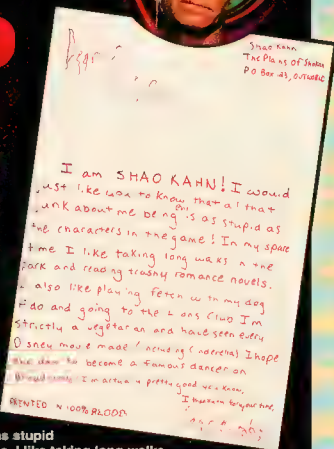 Shao Kahn
The Plains Of Shokan
PO Box 23, OUTWORLD
I am SHAO KAHN! I would
just like you to know that al that
junk about me being evil is as stupid as
the characters in the game! In my spare
time I like taking long walks in the
park and reading trashy romance novels.
I also like playing fetch with my dog
Fido and going to the Lions Club. I'm
strictly a vegetarian and have seen every
Disney movie made (including Cinderella) I hope
one day to become a famous dancer on
I'm actually pretty good you know.
I thank you for your time,
PRINTED IN 100% BLOOD
as stupid
I like taking long walks